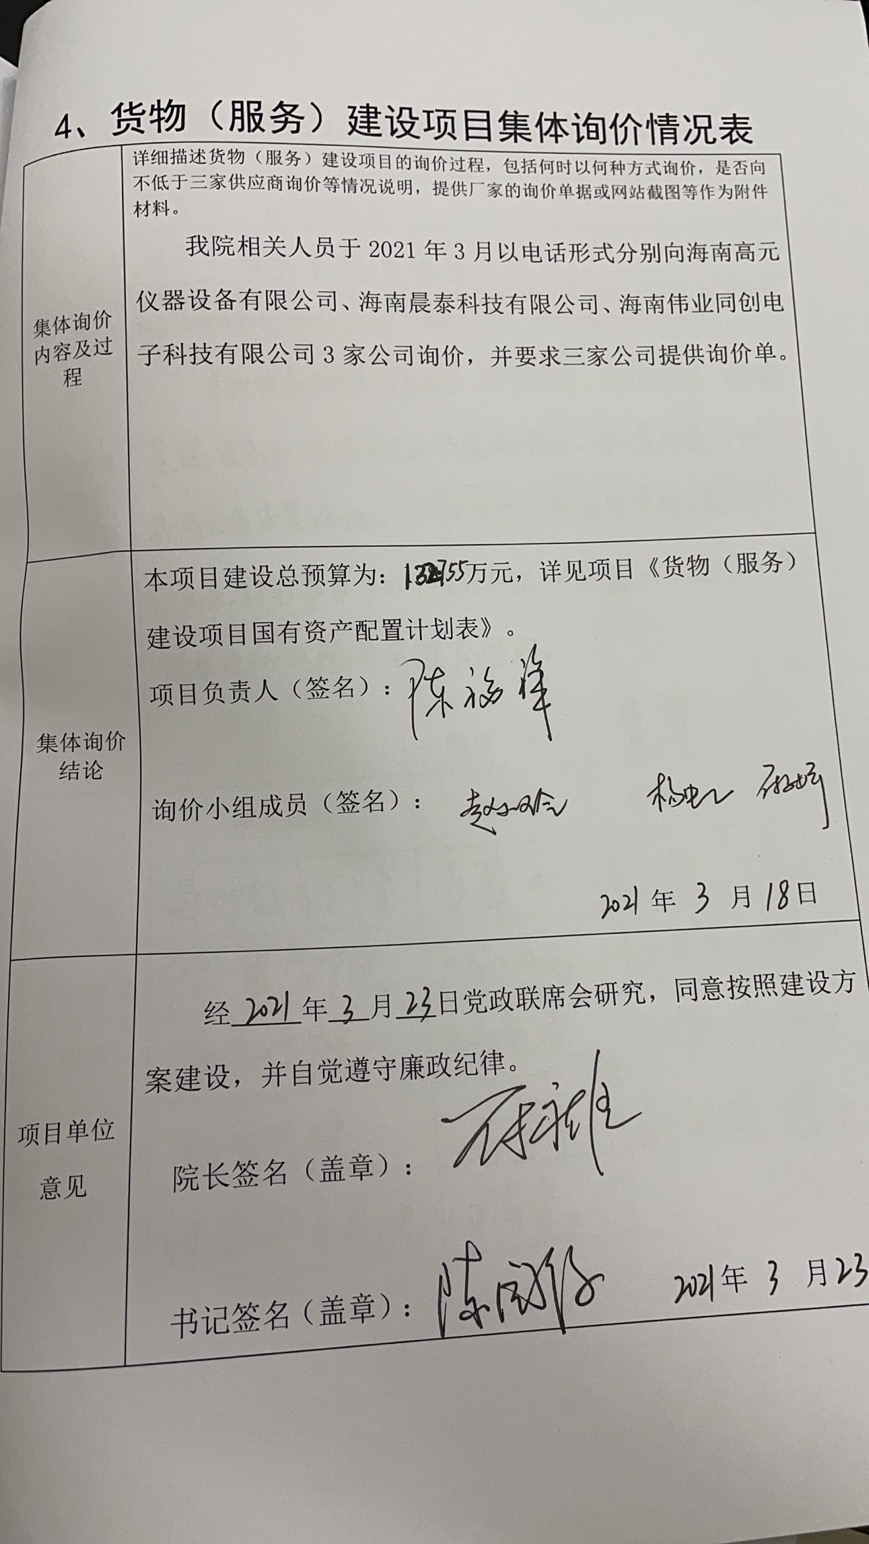 4、货物（服务）建设项目集体询价情况表
详细描述货物（服务）建设项目的询价过程，包括何时以何种方式询价，是否向
不低于三家供应商询价等情况说明，提供厂家的询价单据或网站截图等作为附件
材料。
我院相关人员于 2021 年 3 月以电话形式分别向海南高元
仪器设备有限公司、海南晨泰科技有限公司、海南伟业同创电
子科技有限公司 3 家公司询价，并要求三家公司提供询价单。
集体询价
内容及过
程
本项目建设总预算为：万元，详见项目《货物（服务）
建设项目国有资产配置计划表》。
项目负责人（签名）：陈福洋
集体询价
结论
询价小组成员（签名）：
2021 年 3 月 18日
经 2021 年 3 月 23 日党政联席会研究，同意按照建设方
案建设，并自觉遵守廉政纪律。
项目单位
意见
院长签名（盖章）：
书记签名（盖章）：
2021年 3 月 23